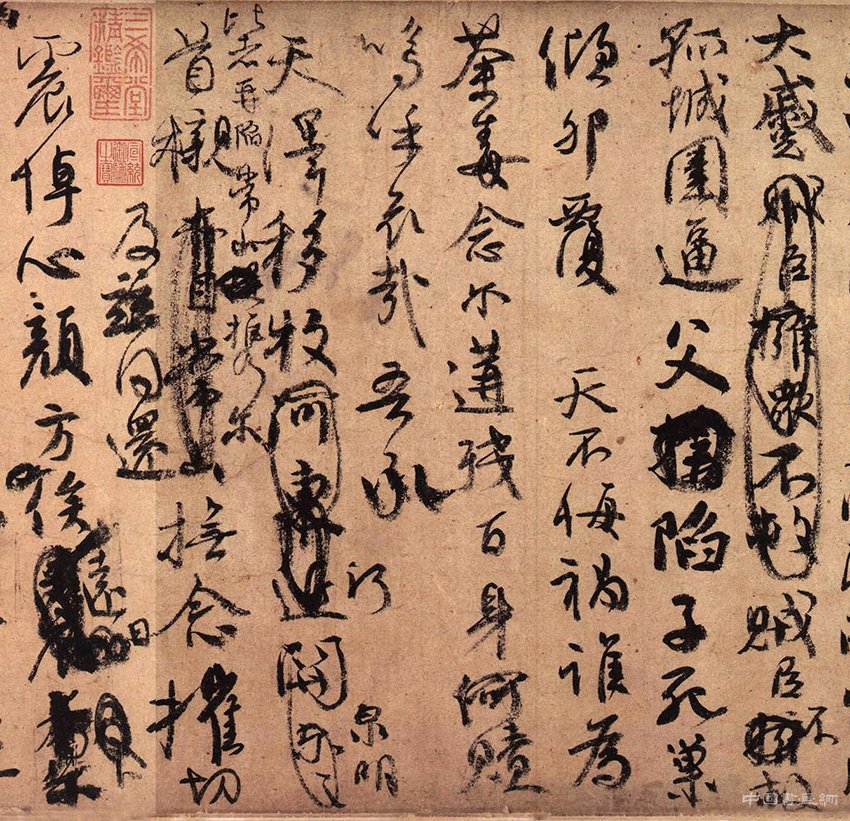 大蹙賊臣擁衆不救賊臣不救
孤城圍逼父陷子死巢
傾卵覆天不悔禍誰為
荼毒念爾遘殘百身何贖
嗚呼哀哉吾承
泉明
天澤移牧河東近關
比者再陷常山攜爾
首櫬撫念摧切
及茲同還
震悼心顏方俟
遠日
三希堂精鑒璽
中国书画网